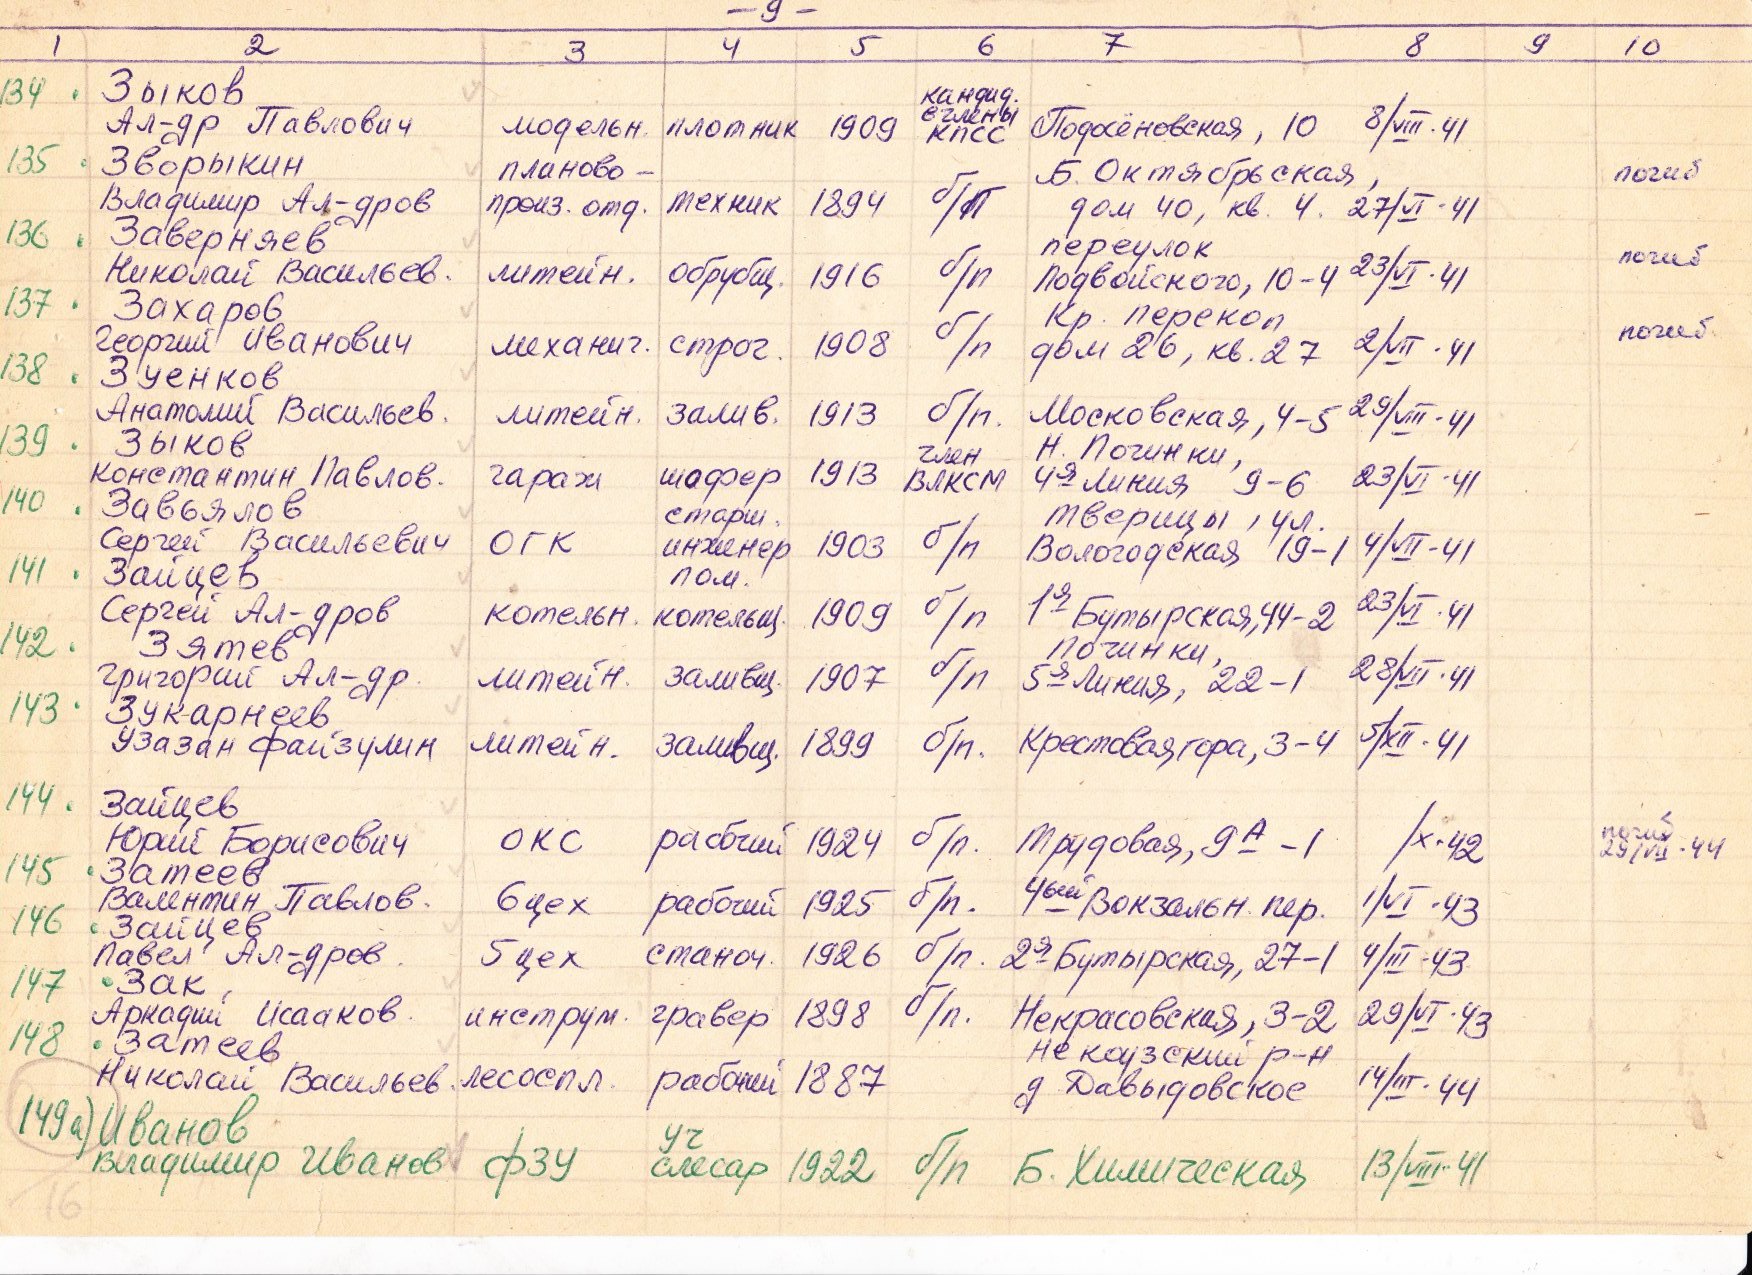 - 9 -
1 2 3 4 5 6 7 8 9 10
134 . Зыков кандид.
в члены
Ал-др Павлович модельн. плотник 1909 КПСС Подосёновская, 10 8/VIII · 41
135 . Зворыкин планово - Б. Октябрьская, погиб
Владимир Ал-дров произ. отд. техник 1894 б/п дом 40, кв. 4. 27/VI · 41
136 . Заверняев переулок погиб
Николай Васильев. литейн. обрубщ. 1916 б/п Подвойского, 10-4 23/VI · 41
137 . Захаров Кр. перекоп погиб
Георгий Иванович механич. строг. 1908 б/п дом 26, кв. 27 2/VII · 41
138 . Зуенков
Анатолий Васильев. литейн. залив. 1913 б/п. Московская, 4-5 29/VIII · 41
139 . Зыков член Н. Починки,
Константин Павлов. гараж шофер 1913 ВЛКСМ 4я Линия 9-6 23/VI · 41
140 . Завьялов старш. Тверицы, 4л.
Сергей Васильевич ОГК инженер 1903 б/п Вологодская 19-1 4/VII - 41
141 . Зайцев пом.
Сергей Ал-дров котельн. котельщ. 1909 б/п 1я Бутырская, 44-2 23/VI · 41
142 . Зятев Починки,
Григорий Ал-др. литейн. заливщ. 1907 б/п 5я Линия, 22-1 28/VII · 41
143 . Зукарнеев
Узазан Файзулин литейн. заливщ. 1899 б/п. Крестовая гора, 3-4 5/XII · 41
144 . Зайцев
Юрий Борисович ОКС рабочий 1924 б/п. Трудовая, 9А - 1 /X · 42 погиб
29/VII · 44
145 . Затеев
Валентин Павлов. 6 цех рабочий 1925 б/п. 4ый Вокзальн. пер. 1/VI · 43
146 . Зайцев
Павел Ал-дров. 5 цех станоч. 1926 б/п. 2я Бутырская, 27-1 4/III · 43
147 . Зак,
Аркадий Исааков. инструм. гравер 1898 б/п. Некрасовская, 3-2 29/VI · 43
148 . Затеев Некоузский р-н
Николай Васильев. лесоспл. рабочий 1887 д Давыдовское 14/III · 44
149а) Иванов уч
Владимир Иванов ФЗУ слесар 1922 б/п Б. Химическая 13/VIII · 41
16